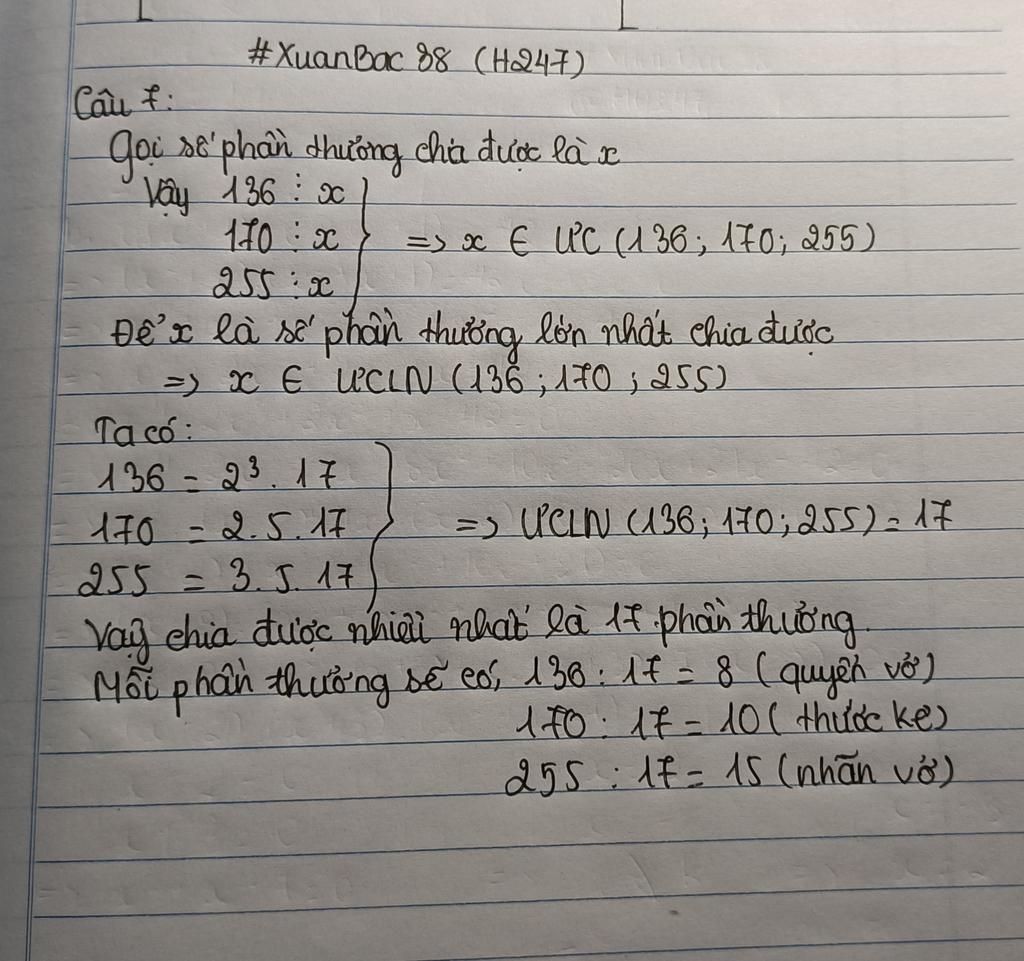 #XuanBac 88 (H247)
Câu 7:
Gọi số phần thưởng chia được là x
Vậy 136 ⋮ x
170 ⋮ x } => x ∈ ƯC (136; 170; 255)
255 ⋮ x
Để x là số phần thưởng lớn nhất chia được
=> x ∈ ƯCLN (136; 170; 255)
Ta có:
136 = 2³. 17
170 = 2. 5. 17 } => ƯCLN (136; 170; 255) = 17
255 = 3. 5. 17
Vậy chia được nhiều nhất là 17 phần thưởng.
Mỗi phần thưởng sẽ có, 136 : 17 = 8 (quyển vở)
170 : 17 = 10 (thước kẻ)
255 : 17 = 15 (nhãn vở)